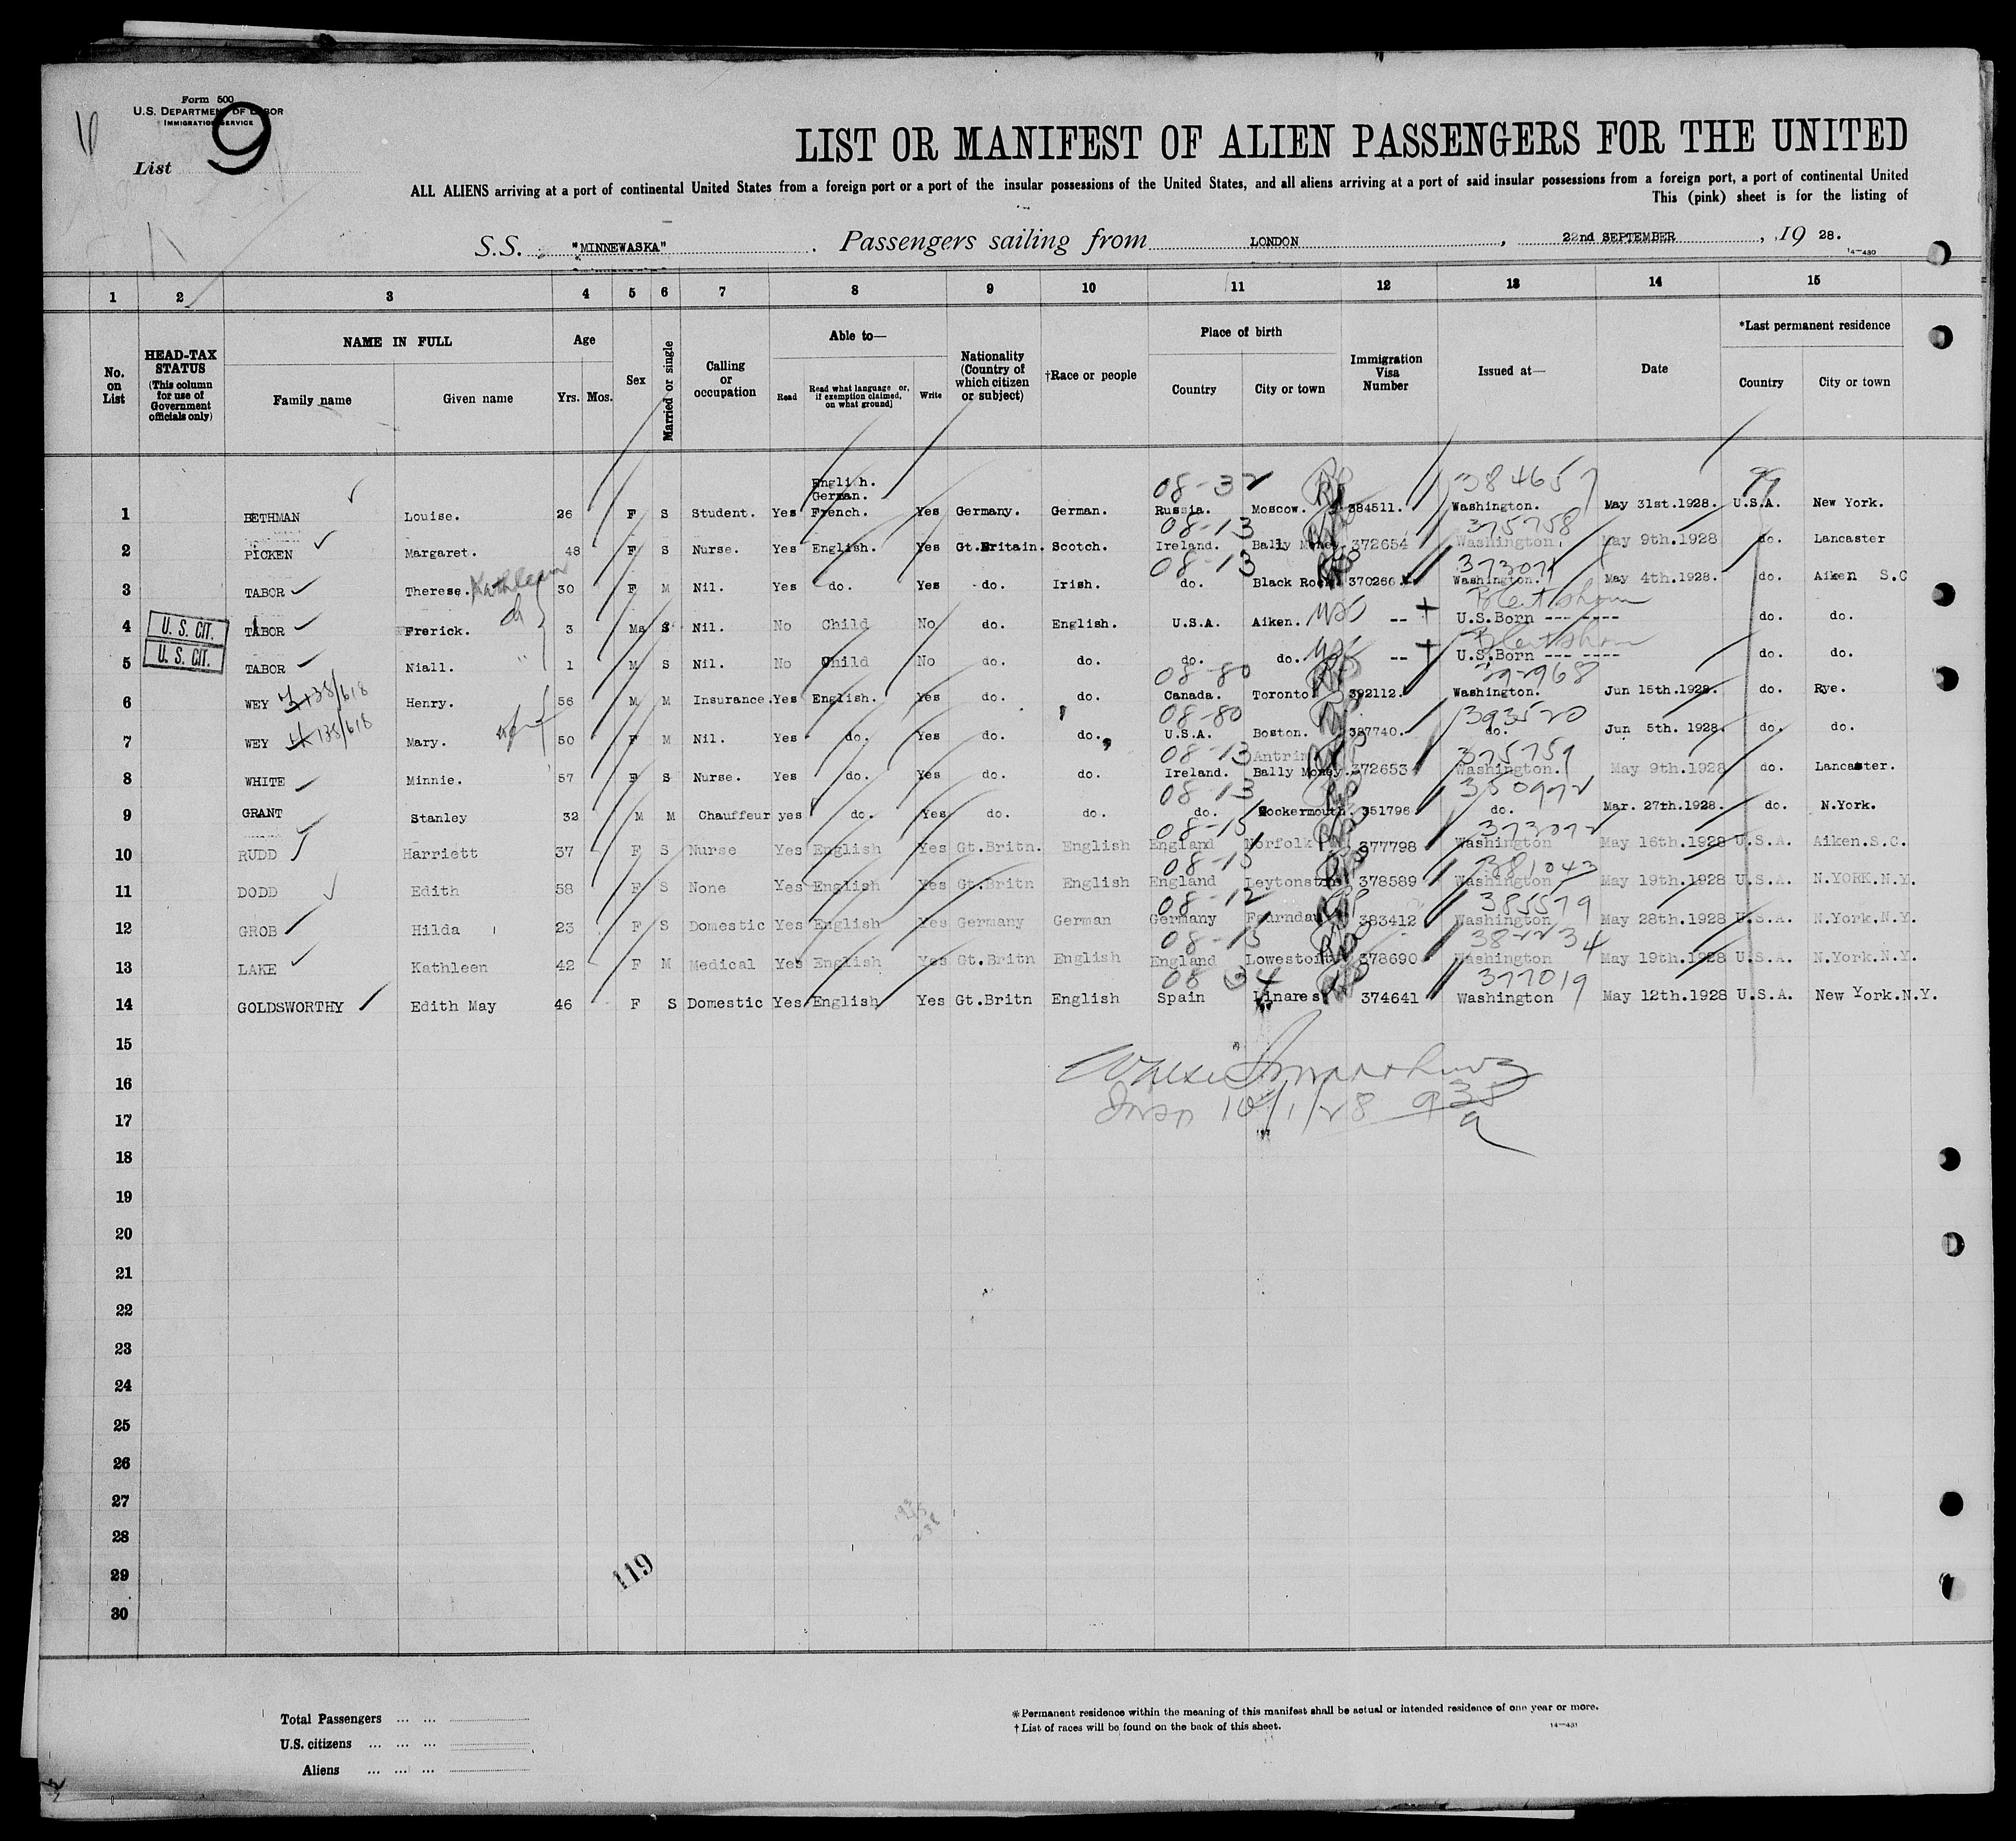 Form 500
U.S. DEPARTMENT OF LABOR
IMMIGRATION SERVICE
List 9
LIST OR MANIFEST OF ALIEN PASSENGERS FOR THE UNITED
ALL ALIENS arriving at a port of continental United States from a foreign port or a port of the insular possessions of the United States, and all aliens arriving at a port of said insular possessions from a foreign port, a port of continental United
This (pink) sheet is for the listing of
S.S. "MINNEWASKA". Passengers sailing from LONDON, 22nd SEPTEMBER, 19 28.
14—430
1 2 3 4 5 6 7 8 9 10 11 12 13 14 15
No. on List
HEAD-TAX STATUS (This column for use of Government officials only)
NAME IN FULL
Family name Given name
Age
Yrs. Mos.
Sex
Married or single
Calling or occupation
Able to—
Read Read what language or, if exemption claimed, on what ground] Write
Nationality (Country of which citizen or subject)
†Race or people
Place of birth
Country City or town
Immigration Visa Number
Issued at—
Date
*Last permanent residence
Country City or town
08-32 384657 99
English.
German.
1 BETHMAN Louise. 26 F S Student. Yes French. Yes Germany. German. Russia. Moscow. 384511. Washington. May 31st.1928. U.S.A. New York.
08-13 375758
2 PICKEN Margaret. 48 F S Nurse. Yes English. Yes Gt.Britain. Scotch. Ireland. Bally Money. 372654 Washington. May 9th.1928 do. Lancaster
08-13 373071
3 TABOR Therese. Kathleen 30 F M Nil. Yes do. Yes do. Irish. do. Black Rock 370266 Washington. May 4th.1928. do. Aiken S.C
4 U. S. CIT. TABOR Frerick. 3 Ma S Nil. No Child No do. English. U.S.A. Aiken. -- U.S.Born --- ---- do. do.
5 U. S. CIT. TABOR Niall. 1 M S Nil. No Child No do. do. do. do. -- U.S.Born --- ---- do. do.
08-80 392968
6 WEY Henry. 56 M M Insurance. Yes English. Yes do. do. Canada. Toronto 392112. Washington. Jun 15th.1928. do. Rye.
08-80 393520
7 WEY Mary. 50 F M Nil. Yes do. Yes do. do. U.S.A. Boston. 387740. do. Jun 5th. 1928. do. do.
08-13 Antrim 375759
8 WHITE Minnie. 57 F S Nurse. Yes do. Yes do. do. Ireland. Bally Money. 372653 Washington. May 9th.1928 do. Lancaster.
08-13 350972
9 GRANT Stanley 32 M M Chauffeur yes do. Yes do. do. do. Cockermouth. 351796 do. Mar. 27rh.1928. do. N.York.
08-13 373072
10 RUDD Harriett 37 F S Nurse Yes English Yes Gt.Britn. English England Norfolk 377798 Washington May 16th.1928 U.S.A. Aiken.S.C.
08-13 381043
11 DODD Edith 58 F S None Yes English Yes Gt.Britn English England Leytonstone 378589 Washington May 19th.1928 U.S.A. N.YORK.N.Y.
08-12 385579
12 GROB Hilda 23 F S Domestic Yes English Yes Germany German Germany 383412 Washington May 28th.1928 U.S.A. N.York.N.Y.
08-13 382234
13 LAKE Kathleen 42 F M Medical Yes English Yes Gt.Britn English England Lowestoft 378690 Washington May 19th.1928 U.S.A. N.York.N.Y.
08 34 377019
14 GOLDSWORTHY Edith May 46 F S Domestic Yes English Yes Gt.Britn English Spain Linares 374641 Washington May 12th.1928 U.S.A. New York.N.Y.
15
16
10/1/28 9 35 a
17
18
19
20
21
22
23
24
25
26
27
28
29
119
30
Total Passengers ... ...
U.S. citizens ... ... ...
Aliens ... ... ...
*Permanent residence within the meaning of this manifest shall be actual or intended residence of one year or more.
†List of races will be found on the back of this sheet.
14—431